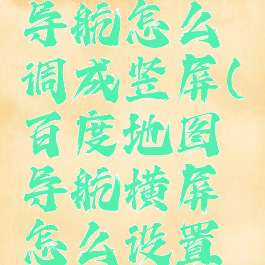 导航怎么
调成竖屏(
百度地图
导航横屏
怎么设置